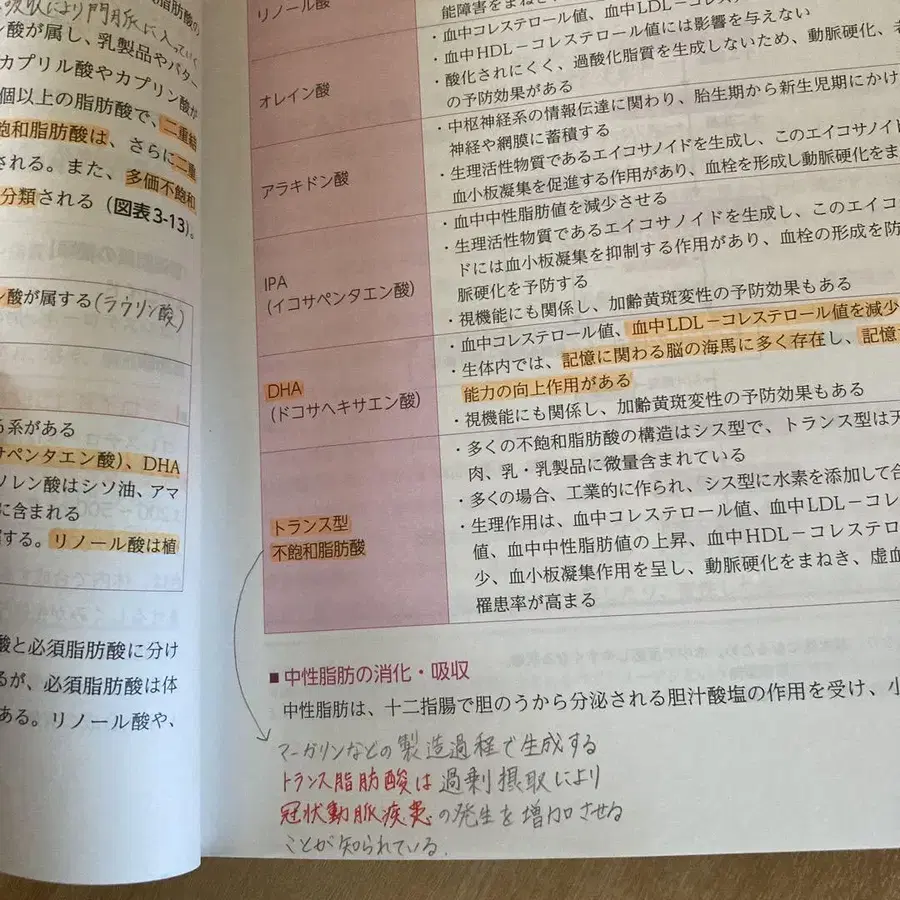 吸収により門脈に入っていく
ン酸が属し、乳製品やバター
カプリル酸やカプリン酸が
個以上の脂肪酸で、二重結
飽和脂肪酸は、さらに二重
される。また、多価不飽和
分類される（図表3-13）。
ン酸が属する(ラウリン酸)
系がある
サペンタエン酸）、DHA
ノレン酸はシソ油、アマ
に含まれる
する。リノール酸は植
酸と必須脂肪酸に分け
るが、必須脂肪酸は体
ある。リノール酸や、
リノール酸
能障害をまねき
・血中コレステロール値、血中LDL－コレステロ
・血中HDL－コレステロール値には影響を与えない
オレイン酸
・酸化されにくく、過酸化脂質を生成しないため、動脈硬化、
の予防効果がある
アラキドン酸
・中枢神経系の情報伝達に関わり、胎生期から新生児期にかけ
神経や網膜に蓄積する
・生理活性物質であるエイコサノイドを生成し、このエイコサノイド
血小板凝集を促進する作用があり、血栓を形成し動脈硬化をま
IPA
（イコサペンタエン酸）
・血中中性脂肪値を減少させる
・生理活性物質であるエイコサノイドを生成し、このエイコサ
ドには血小板凝集を抑制する作用があり、血栓の形成を防
脈硬化を予防する
・視機能にも関係し、加齢黄斑変性の予防効果もある
DHA
（ドコサヘキサエン酸）
・血中コレステロール値、血中LDL－コレステロール値を減少
・生体内では、記憶に関わる脳の海馬に多く存在し、記憶
能力の向上作用がある
・視機能にも関係し、加齢黄斑変性の予防効果もある
トランス型
不飽和脂肪酸
・多くの不飽和脂肪酸の構造はシス型で、トランス型は天
肉、乳・乳製品に微量含まれている
・多くの場合、工業的に作られ、シス型に水素を添加して合
・生理作用は、血中コレステロール値、血中LDL－コレ
値、血中中性脂肪値の上昇、血中HDL－コレステロ
少、血小板凝集作用を呈し、動脈硬化をまねき、虚血
罹患率が高まる
■中性脂肪の消化・吸収
中性脂肪は、十二指腸で胆のうから分泌される胆汁酸塩の作用を受け、小
マーガリンなどの製造過程で生成する
トランス脂肪酸は過剰摂取により
冠状動脈疾患の発生を増加させる
ことが知られている.